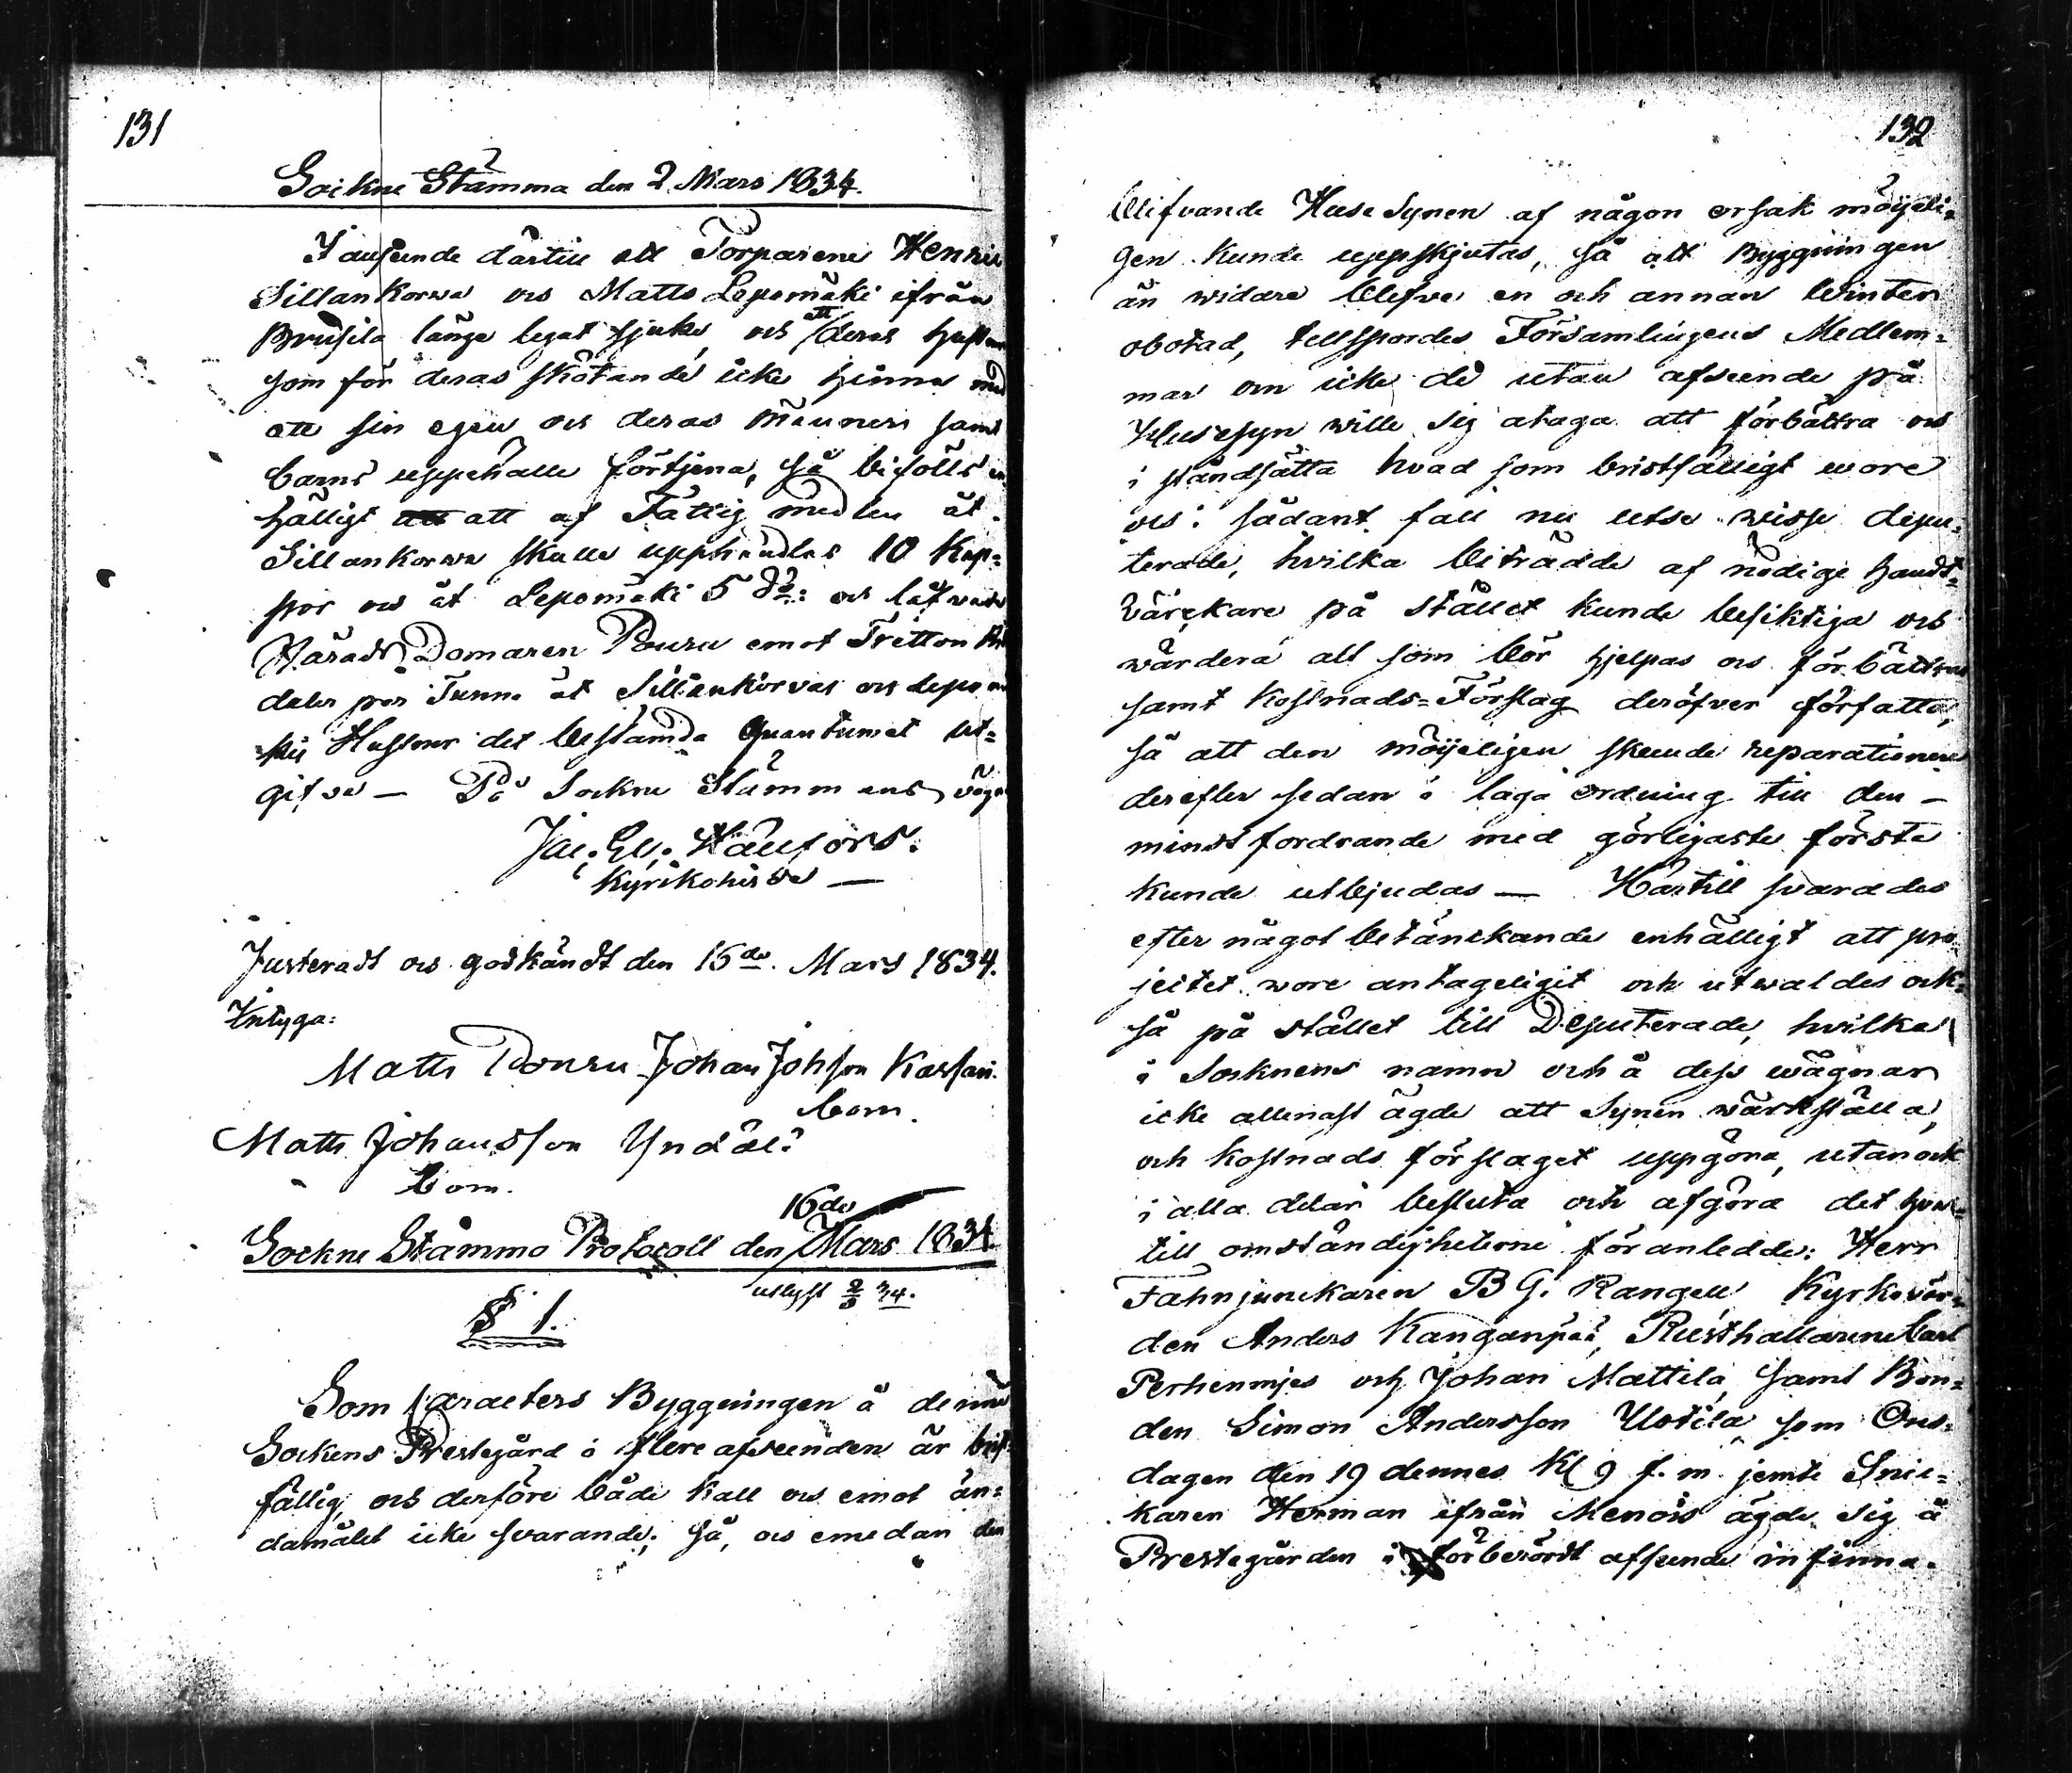 131
Sockne Stämma den 2 Mars 1834.
I anseende dertill att Torparene Henric
Sillankorwa och Matts Lepomäki ifrån
Brusila länge legat sjuke och att deras hustrur
som för deras skötande icke hinna med
att sin egen och deras männers samt
barns uppehälle förtjena, så bifölls en-
hälligt att af Fattig medlen åt
Sillankorwa skulle upphandlas 10 Kap-
por och åt Lepomäki 5 d:o: och låfwade
Härads Domaren Rouru emot Tretton
daler per Tunna åt Sillankorvas och Lepomä-
kis Hustrur det bestämda Quantumet ut-
gifva — På Sockne Stämmans vägnar
Jac: Gu: Hällfors.
Kyrkoherde —
Justeradt och godkändt den 16de Mars 1834.
Intyga:
Matts Rouru Johan Johsson Karsari.
bom.
Matts Johansson Yndäl?
bom.
16de
Sockne Stämmo Protocoll den Mars 1834.
utlyst 2/3 34.
§ 1.
Som Karacters Byggningen å denna
Sockens Prestegård i flere afseenden är brist-
fällig, och derföre både kall och emot än-
damålet icke svarande; så, och emedan den
132
blifvande Huse Synen af någon orsak möyeli-
gen kunde uppskjutas, så att Byggningen
än widare blefve en och annan Winter
obotad, tillspordes Församlingens Medlem-
mar om icke de utan afseende på
Husesyn wille sig åtaga att förbättra och
i ståndsätta hvad som bristfälligt wore
och i sådant fall nu utse wisse depu-
terade, hvilka biträdde af nödige handt-
värckare på stället kunde besiktiga och
wärdera allt som bör hjelpas och förbättras
samt Kostnads-Förslag deröfver författa,
så att den möyeligen skeende reparationen
derefter sedan i laga ordning till den —
minst fordrande med görligaste första
kunde utbjudas — Härtill svarades
efter något betänckande enhälligt att pro-
jectet wore antageligit och utwaldes ock-
så på stället till Deputerade, hvilka
i Socknens namn och å dess wägnar
icke allenast ägde att Synen wärkställa,
och kostnads förslaget uppgöra, utan ock
i alla delar besluta och afgöra det hvar-
till omständigheterne föranledde: Herr
Fahnjunckaren B G. Rangell Kyrkovär-
den Anders Kanganpää, Rusthållarene Carl
Perhenmjes och Johan Mattila, samt Bon-
den Simon Andersson Uotila som Ons-
dagen den 19 dennes Kl 9 f. m. jemte Snic-
karen Herman ifrån Menois ägde sig å
Prestegården i förberördt afseende infinna.